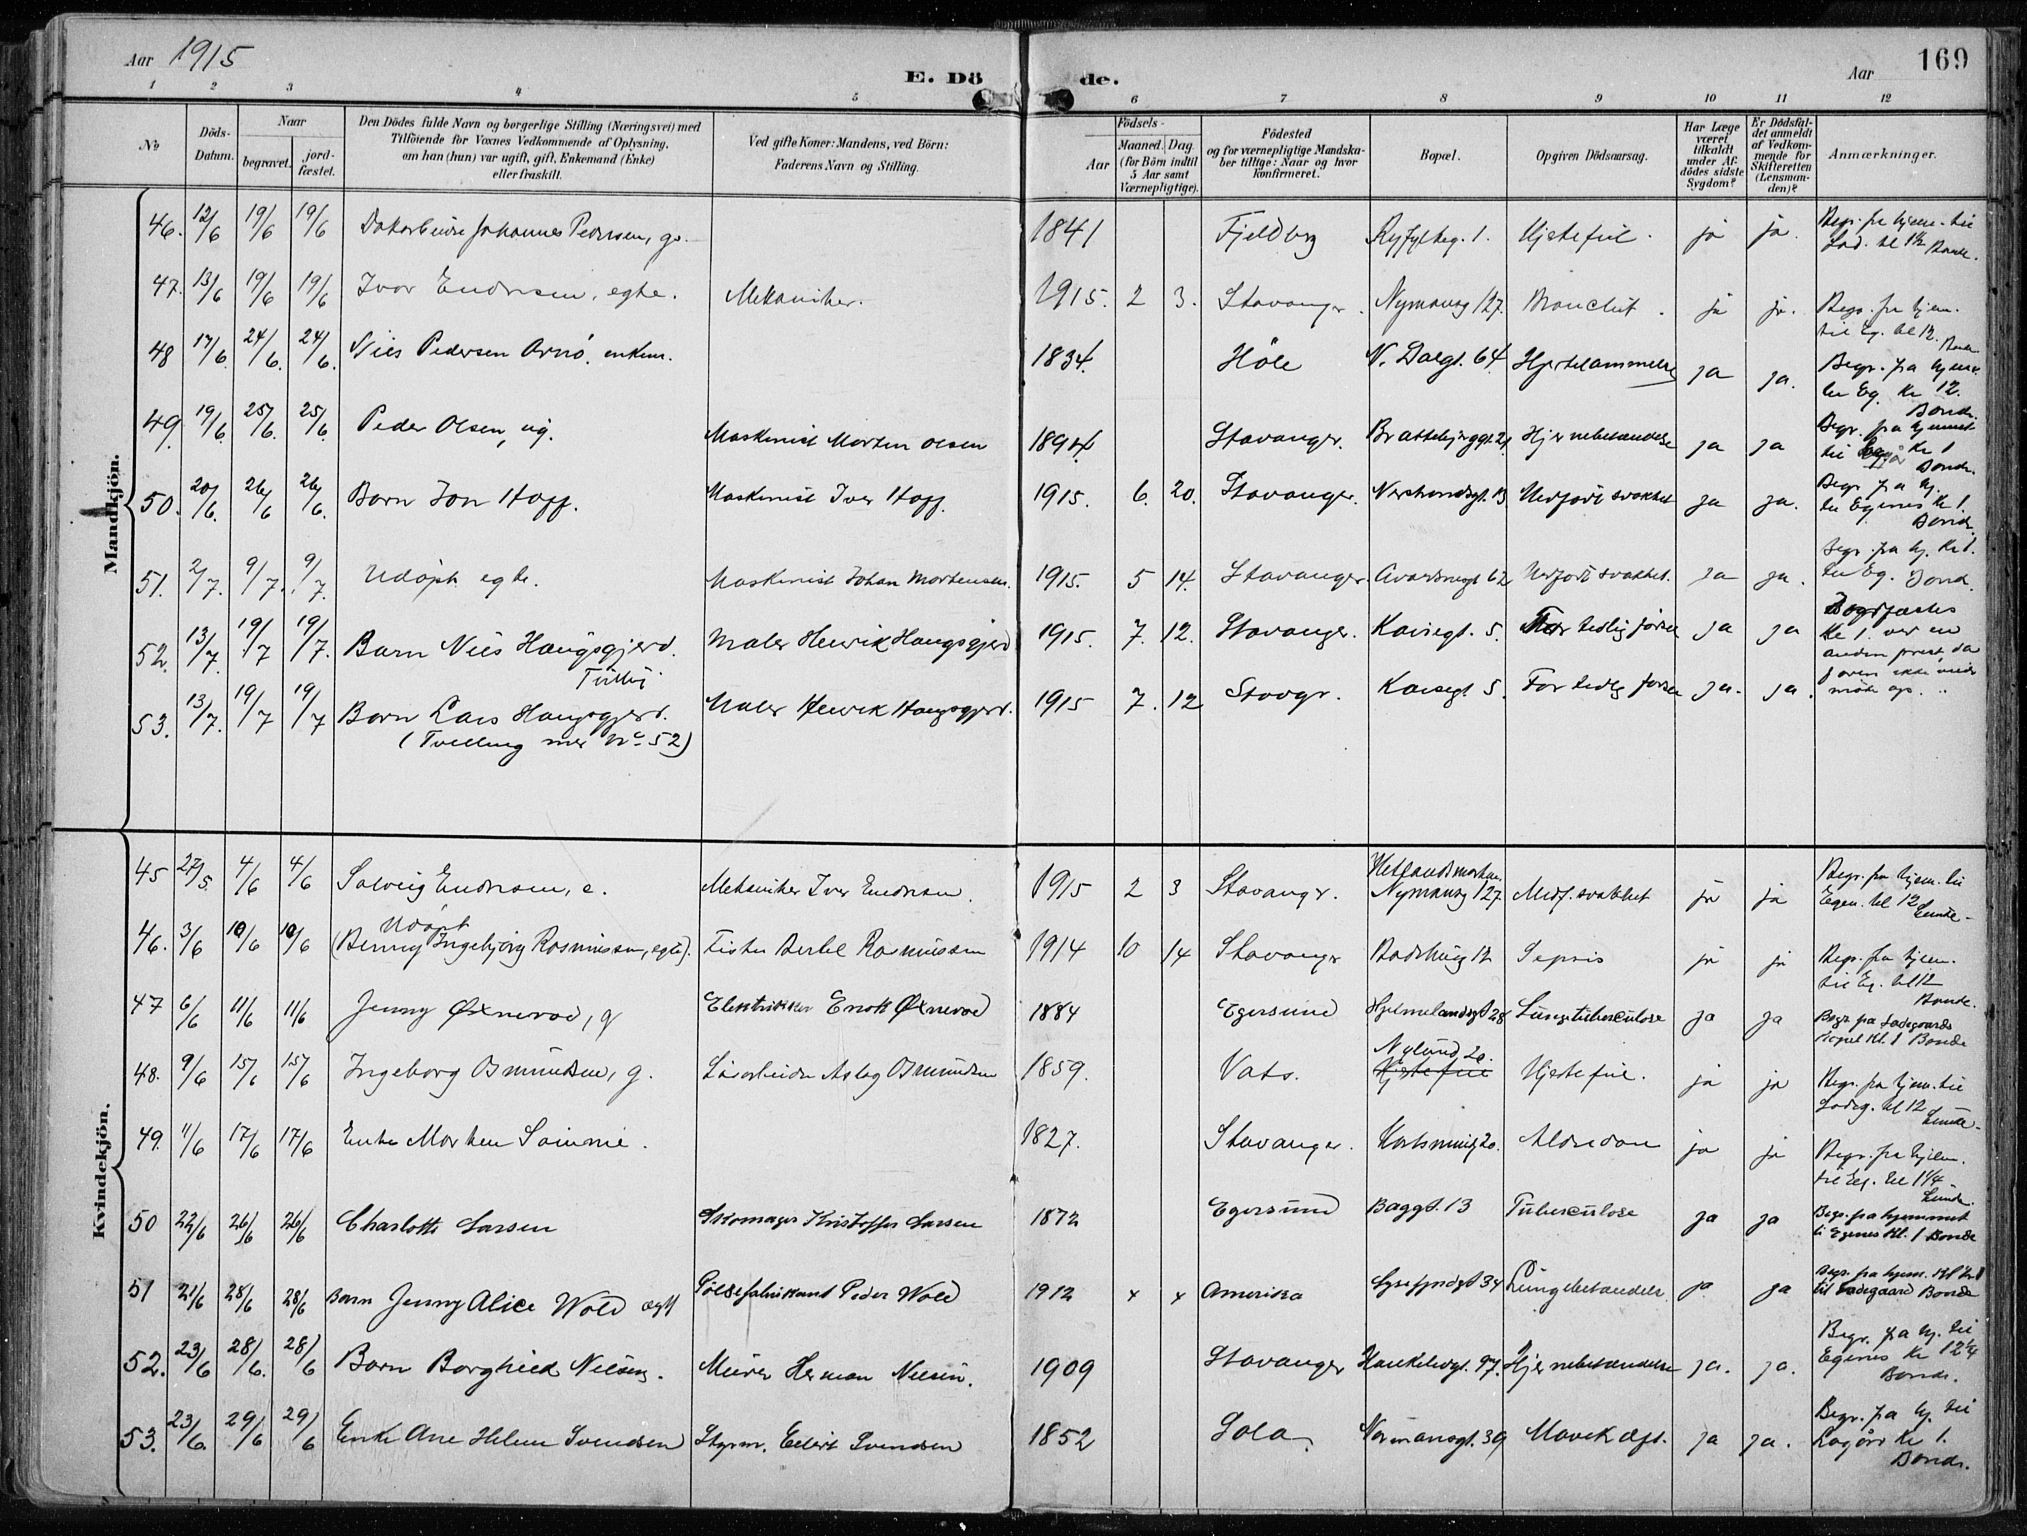 Aar 1915
E. Döde.
Aar 169
1 2 3 4 5 6 7 8 9 10 11 12
No
Döds-Datum.
Naar begravet. jordfæstet.
Den Dödes fulde Navn og borgerlige Stilling (Næringsvei) med
Tilföiende for Voxnes Vedkommende af Oplysning,
om han (hun) var ugift, gift, Enkemand (Enke)
eller fraskilt.
Ved gifte Koner: Mandens, ved Börn:
Faderens Navn og Stilling.
Födsels-
Aar Maaned. Dag.
(for Börn indtil 5 Aar samt Værnepligtige).
Födested
og for værnepligtige Mandskaber tillige: Naar og hvor konfirmeret.
Bopæl.
Opgiven Dödsaarsag.
Har Læge været tilkaldt under Afdödes sidste Sygdom?
Er Dödsfaldet anmeldt af Vedkommende for Skifteretten (Lensmanden)?
Anmærkninger.
Mandkjön.
46. 12/6 19/6 19/6 Johannes Pedersen, 1841 Fjeldberg 1. ja ja.
47. 13/6 19/6 19/6 Ivar Endresen, egte. Mekaniker. 1915. 2 3. Stavanger. Nymansg 127. ja ja. Begr. fra hjem.
til Eg. kl 12.
48 17/6. 24/6. 24/6. Nils Pedersen Arnö. enkem. 1834. Höle N. Dalgt. 64 ja ja. Begr. fra hjem.
til Eg. Kl 12.
Bonde.
49. 19/6. 25/6. 25/6. Peder Olsen, ug. Maskinist Morten Olsen 1894 Stavanger. Hjernebetændelse ja ja Begr. fra hjemmet
til Kl 1
Bonde.
50. 20/6. 26/6 26/6. Barn Jon Hoff. Maskinist Iver Hoff. 1915. 6. 20. Stavanger. Medfödt svakhet ja ja. Begr. fra hj.
til Egenes Kl 1.
Bonde.
51. 2/7. 9/7. 9/7. Udöpt egte. Maskinist Johan Mortensen. 1915. 5 14. Stavanger. Avaldsnesgt 62 Medfödt svakhet. ja ja. Begr. fra hj. Kl 1.
til Eg. Bonde
52. 13/7. 19/7 19/7. Barn Nils Haugsgjerd. Maler Henrik Haugsgjerd 1915. 7. 12. Stavanger. Kaisegt. 5. For tidlig födsel ja ja
Kl 1. ver en
anden prest, da
Tvilling
53. 13/7. 19/7 19/7 Barn Lars Haugsgjerd. Maler Henrik Haugsgjerd. 1915 7. 12 Stavgr. Kaisegt 5. For tidlig födsel ja. ja.
(Tvilling med No 52)
Kvindekjön.
45 27/5. 4/6 4/6 Solveig Endresen, e. Mekaniker Iver Endresen. 1915 2 3 Stavangr. Nymansg 127. Medf. svakhet ja ja Begr. fra hjem. til
Egen. kl 12
Lunde.
Udöpt
46. 3/6 10/6 10/6 (Benny Ingebjörg Rasmussen, egte). Fisker Bertel Rasmussen 1914 10 14 Stavanger 12 Sepsis ja ja Begr. fra hjem.
til Eg. kl 12
Bonde.
47 6/6 11/6 11/6 Jenny Øxnevad, g Elektriker Enok Øxnevad 1884 Egersund Hjelmelandsgt 28 Lungetuberculose ja ja Begr fra Ladegaards
kapel Kl. 1 Bonde
48. 9/6 15/6 15/6 Ingeborg Osmundsen, g. Aslag Osmundsen 1859. Vats. Nylund 20. Hjertefeil. ja ja Begr. fra hjem. til
Ladeg. kl 12
Lunde.
49. 11/6 17/6 17/6 Enke Marthen Sömme. 1827. Stavanger. 20. Alderdom ja ja Begr. fra hjem.
til Eg. kl 1 1/4.
Lunde.
50 22/6 26/6 26/6 Charlotte Larsen Skomager Kristoffer Larsen 1872 Egersund Baggt. 13 Tuberculose ja ja Begr. fra hjemmet
til Egenes Kl. 1 Bonde
51 21/6 28/6 28/6 Barn Jenny Alice Wold ægt Pölsefabrikant Peder Wold 1912 x x Amerika Lysefjordgt 34 Lungebetændelse ja ja Begr. fra hjem. Kl
til Ladegaard Bonde
52. 23/6 28/6. 28/6 Barn Borghild Nilsen. Murer Herman Nilsen. 1909 Stavanger Haukeligt. 97. Hjernebetændelse ja. ja. Begr. fra hj. til
Egenes Kl 12 1/4
Bonde.
53. 23/6. 29/6 29/6 Enke Ane Helene Svendsen Styrm. Eilert Svendsen 1852 Sola. Normansgt. 39 ja ja. Begr. fra hj. til
Lagård Kl 1.
Bonde.